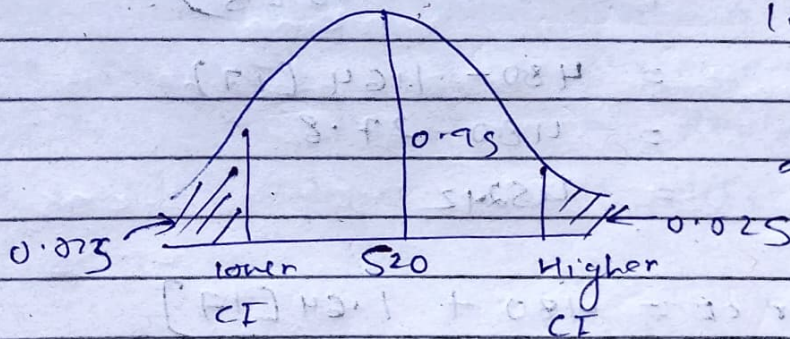 1.
0.95
0.025
0.025
lower 520 Higher
CI CI